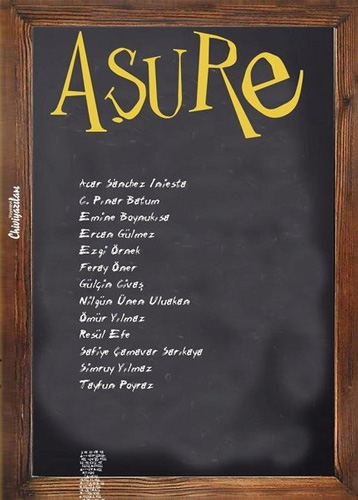 AŞURe
Acar Sanchez Iniesta
C. Pınar Batum
Emine Boynukısa
Ercan Gülmez
Ezgi Örnek
Feray Öner
Gülçin Civaş
Nilgün Ünen Uluakan
Ömür Yılmaz
Resül Efe
Safiye Çamavar Sarıkaya
Simruy Yılmaz
Tayfun Poyraz
Chiviyazıları